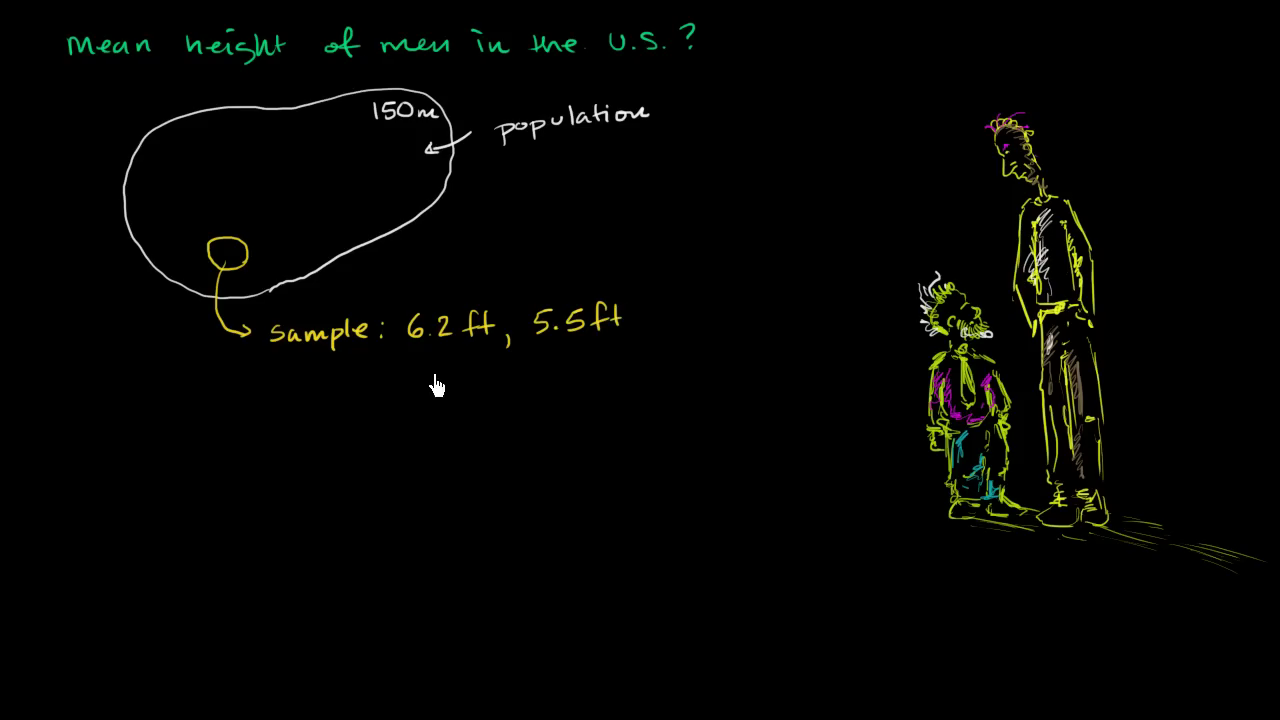 Mean height of men in the U.S.?
150m
population
sample: 6.2 ft, 5.5 ft